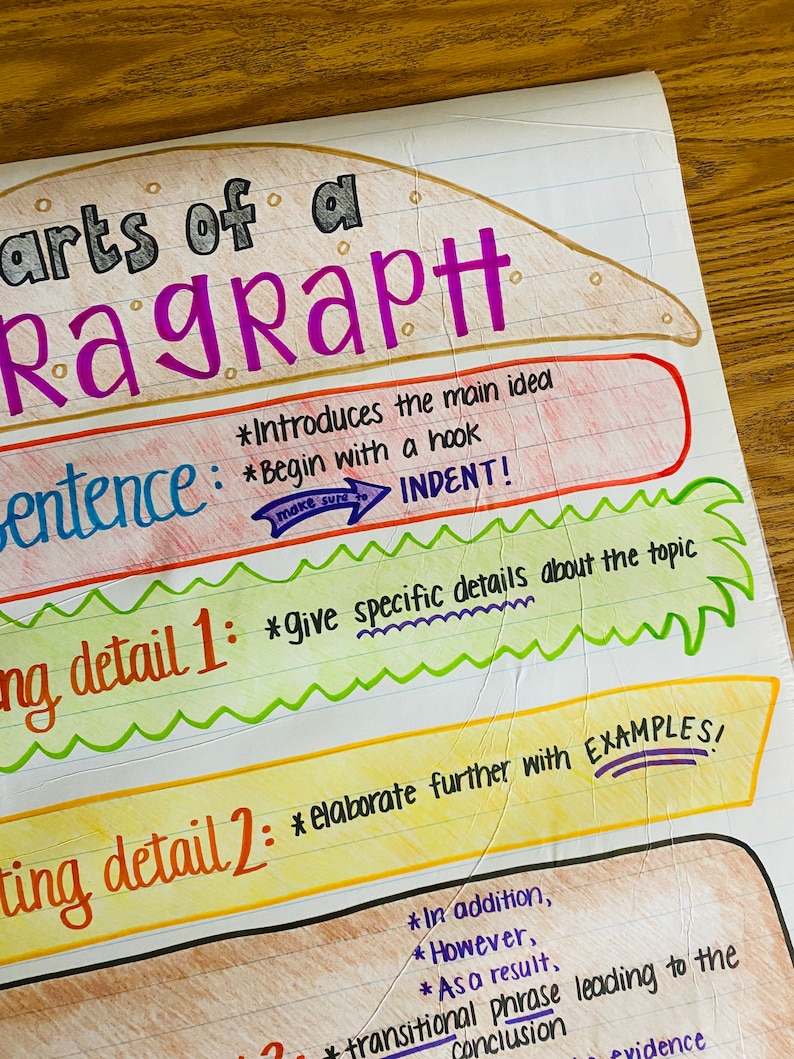 arts of a
RagRapH
sentence:
*Introduces the main idea
*Begin with a hook
make sure to INDENT!
ng detail 1: *give specific details about the topic
ting detail 2: *elaborate further with EXAMPLES!
*In addition,
*However,
*As a result,
*transitional phrase leading to the
conclusion
evidence